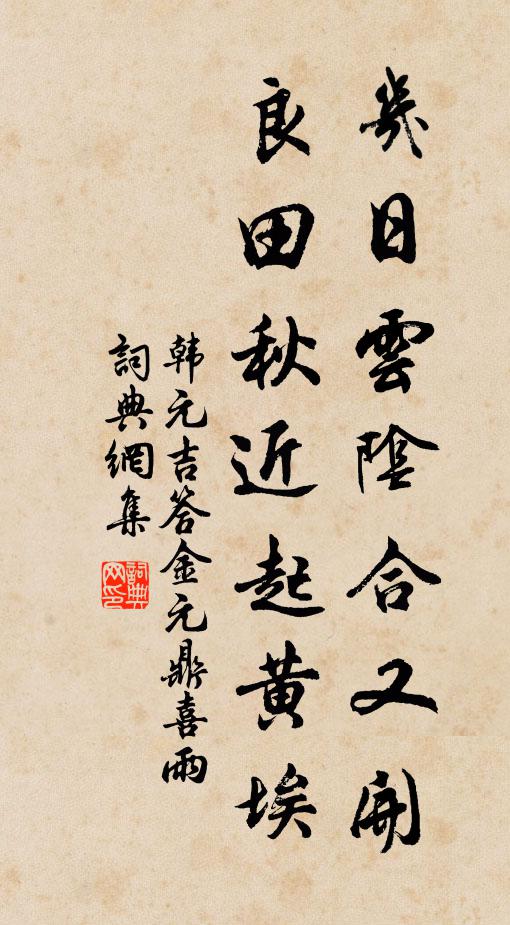 幾日雲陰合又開
良田秋近起黃埃
韩元吉答金元鼎喜雨
詞典網集
詞典网印